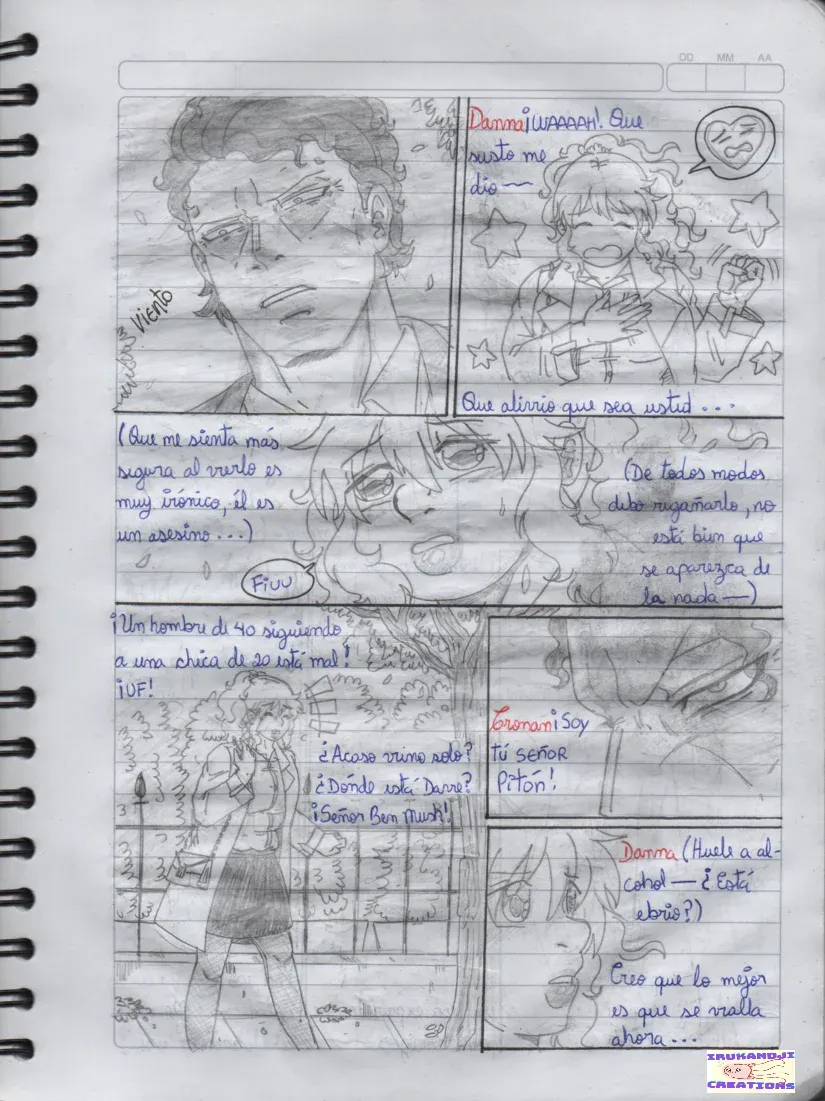 DD MM AA
Viento
Danna ¡WAAAAH! Que
susto me
dio —
Que alivrio que sea ustid...
(Que me sienta más
segura al vrerlo es
muy irónico, él es
un asesino...)
Fiuu
(De todos modos
debo rigañarlo, no
está bien que
se aparezca de
la nada —)
¡Un hombre de 40 siguiendo
a una chica de 20 está mal!
¡UF!
¿Acaso vrino solo?
¿Dónde istá Darre?
¡Señor Ben Mush!
Cronan ¡Soy
tú SEÑOR
Pitón!
Danna (Huele a al-
cohol — ¿Está
ebrio?)
Creo que lo mejor
es que se vralla
ahora...
IRUKANDJI
CREATIONS